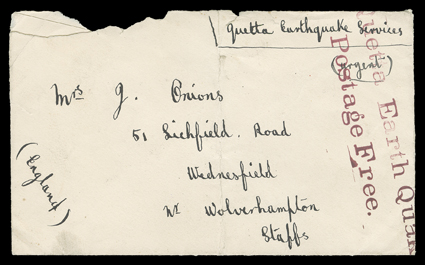 Quetta Earthquake Services
(Urgent)
Quetta Earth Quak
Postage Free.
Mrs J. Onions
51 Lichfield. Road
Wednesfield
Nr Wolverhampton
Staffs
(England)